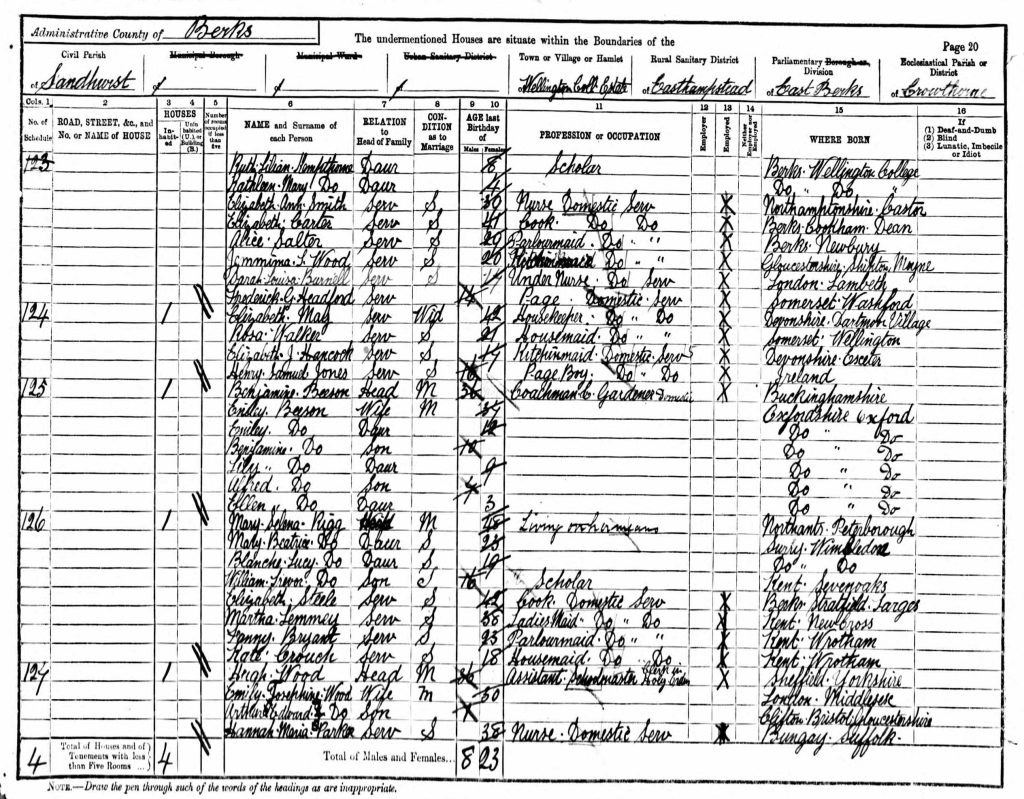 Administrative County of Berks
The undermentioned Houses are situate within the Boundaries of the
Page 20
Civil Parish of Sandhurst
Municipal Borough of
Municipal Ward of
Urban Sanitary District of
Town or Village or Hamlet of Wellington Coll Estate
Rural Sanitary District of Easthampstead
Parliamentary Borough or Division of East Berks
Ecclesiastical Parish or District of Crowthorne
Cols. 1 2 3 4 5 6 7 8 9 10 11 12 13 14 15 16
No. of Schedule
ROAD, STREET, &c., and No. or NAME of HOUSE
HOUSES
Inhabited
Uninhabited (U.) or Building (B.)
Number of rooms occupied if less than five
NAME and Surname of each Person
RELATION to Head of Family
CONDITION as to Marriage
AGE last Birthday of
Males Females
PROFESSION or OCCUPATION
Employer
Employed
Neither employer nor employed
WHERE BORN
If (1) Deaf-and-Dumb (2) Blind (3) Lunatic, Imbecile or Idiot
123 Ruth Lilian Daur 8 Scholar Berks Wellington College
Kathleen Mary Do Daur 4 Do " Do "
Elizabeth Ann Smith Serv S 30 Nurse Domestic Serv X Northamptonshire Castor
Elizabeth Carter Serv S 41 Cook Do Do X Berks Cookham Dean
Alice Salter Serv S 29 Parlourmaid Do " " X Berks Newbury
Jemmima F Wood Serv S 20 Do " " X Gloucestershire Shipton Moyne
Sarah Louisa Burnell Serv S 17 Under Nurse Do Serv X London Lambeth
Frederick G Headford Serv 14 Page Domestic Serv X Somerset Washford
124 1 Elizabeth May Serv Wid 42 Housekeeper Do " Do X Devonshire Dartmoor Village
Rosa Walker Serv S 21 Housemaid Do " " X Somerset Wellington
Elizabeth J Hancock Serv S 17 Kitchinmaid Domestic Serv X Devonshire Exeter
Henry Samuel Jones Serv S 16 Page Boy Do Do X Ireland
125 1 Benjamine Beeson Head M 36 Coachman & Gardener Domestic X Buckinghamshire
Emiley Beeson Wife M 37 Oxfordshire Oxford
Emiley Do Daur 12 Do " Do
Benjamine Do Son 10 Do " Do
Lily " Do Daur 9 Do " Do
Alfred Do Son 4 Do " Do
Ellen " Do Daur 3 Do " Do
126 1 Mary Selena Rigg Head M 48 Living on her means Northants Peterborough
Mary Beatrice Do Daur S 23 Surry Wimbledon
Blanche Lucy Do Daur S 19 Do " Do
William Trevor Do Son S 16 Scholar Kent Sevenoaks
Elizabeth Steele Serv S 42 Cook Domestic Serv X Berks Stratfield Sarges
Martha Lemmey Serv S 38 Ladies Maid Do " Do X Kent New Cross
Fanney Bryant Serv S 23 Parlourmaid Do " " X Kent Wrotham
Kate Crouch Serv S 18 Housemaid Do Do X Kent Wrotham
127 1 Hugh Wood Head M 36 Assistant Schoolmaster Clerk in Holy Orders Sheffield Yorkshire
Emily Josephine Wood Wife M 30 London Middlesex
Arthur Edward Do Son Clifton Bristol Gloucestershire
Hannah Maria Parker Serv S 38 Nurse Domestic Serv X Bungay Suffolk
4 Total of Houses and of Tenements with less than Five Rooms 4 Total of Males and Females... 8 23
NOTE.—Draw the pen through such of the words of the headings as are inappropriate.